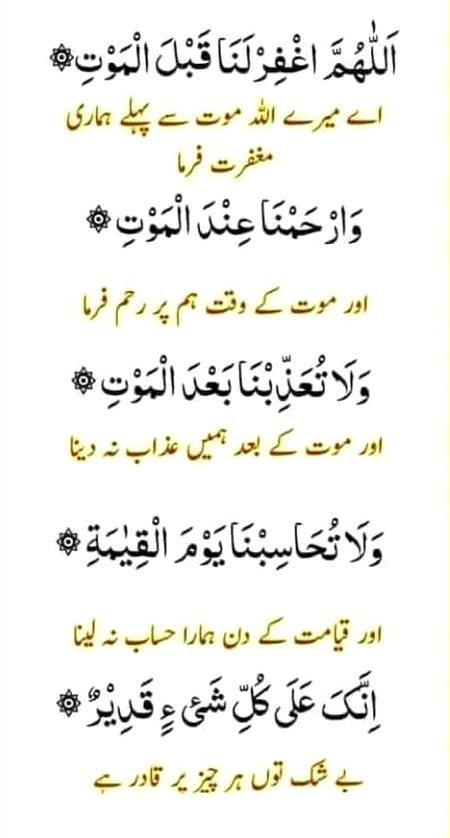 اَللّٰهُمَّ اغْفِرْ لَنَا قَبْلَ الْمَوْتِ ۞
اے میرے اللہ موت سے پہلے ہماری
مغفرت فرما
وَارْحَمْنَا عِنْدَ الْمَوْتِ ۞
اور موت کے وقت ہم پر رحم فرما
وَلَا تُعَذِّبْنَا بَعْدَ الْمَوْتِ ۞
اور موت کے بعد ہمیں عذاب نہ دینا
وَلَا تُحَاسِبْنَا يَوْمَ الْقِيٰمَةِ ۞
اور قیامت کے دن ہمارا حساب نہ لینا
اِنَّكَ عَلَى كُلِّ شَىْءٍ قَدِيْرٌ ۞
بے شک توں ہر چیز پر قادر ہے